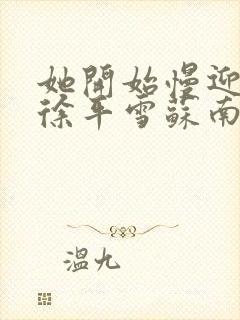 她開始慢迎
徐平雪蘇南
溫九